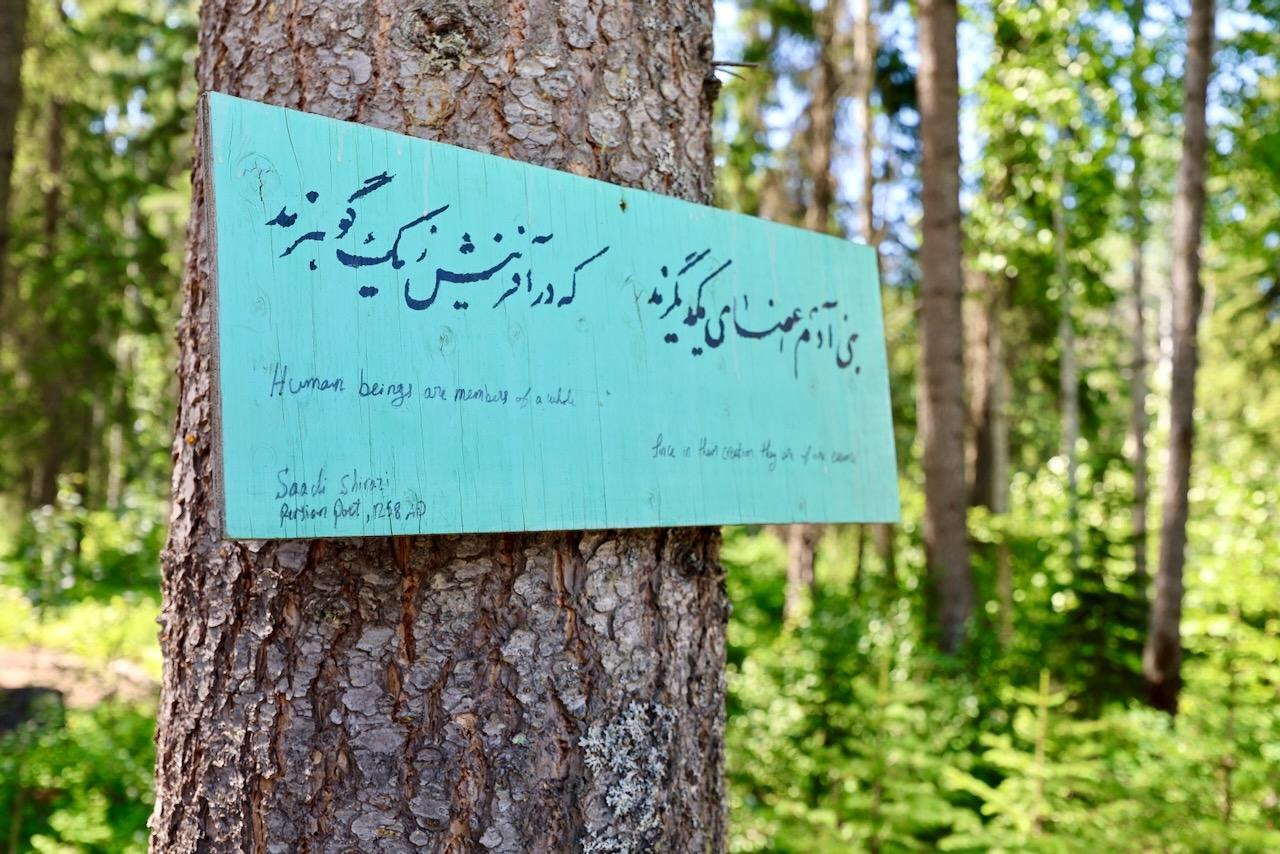 بنی آدم اعضای یکدیگرند
که در آفرینش ز یک گوهرند
Human beings are members of a whole
Since in their creation they are of one essence
Saadi Shirazi
Persian Poet, 1258 AD